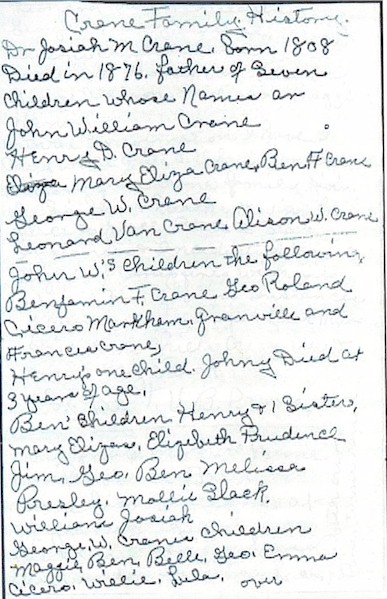 Crane Family History.
Dr Josiah M. Crane. Born 1808
Died in 1876. father of Seven
children whose Names are
John William Crane
Henry D. Crane
Eliza Mary Eliza Crane, Ben. F Crane
George W. Crane
Leonard Van Crane, Alison W. Crane
John W.'s children the following
Benjamin F. Crane Geo Roland
Cicero Markham. Granville and
Francis Crane,
Henry's one child. Johny Died at
3 years of age,
Ben' Children, Henry & 1 Sister,
Mary Elizas, Elizebeth Prudence
Jim, Geo, Ben Melissa
Presley. Mollie Slack.
William Josiah
George, W. Cranes Children
Maggie, Ben, Belle, Geo. Emma
Cicero, Willie, Lula,
over